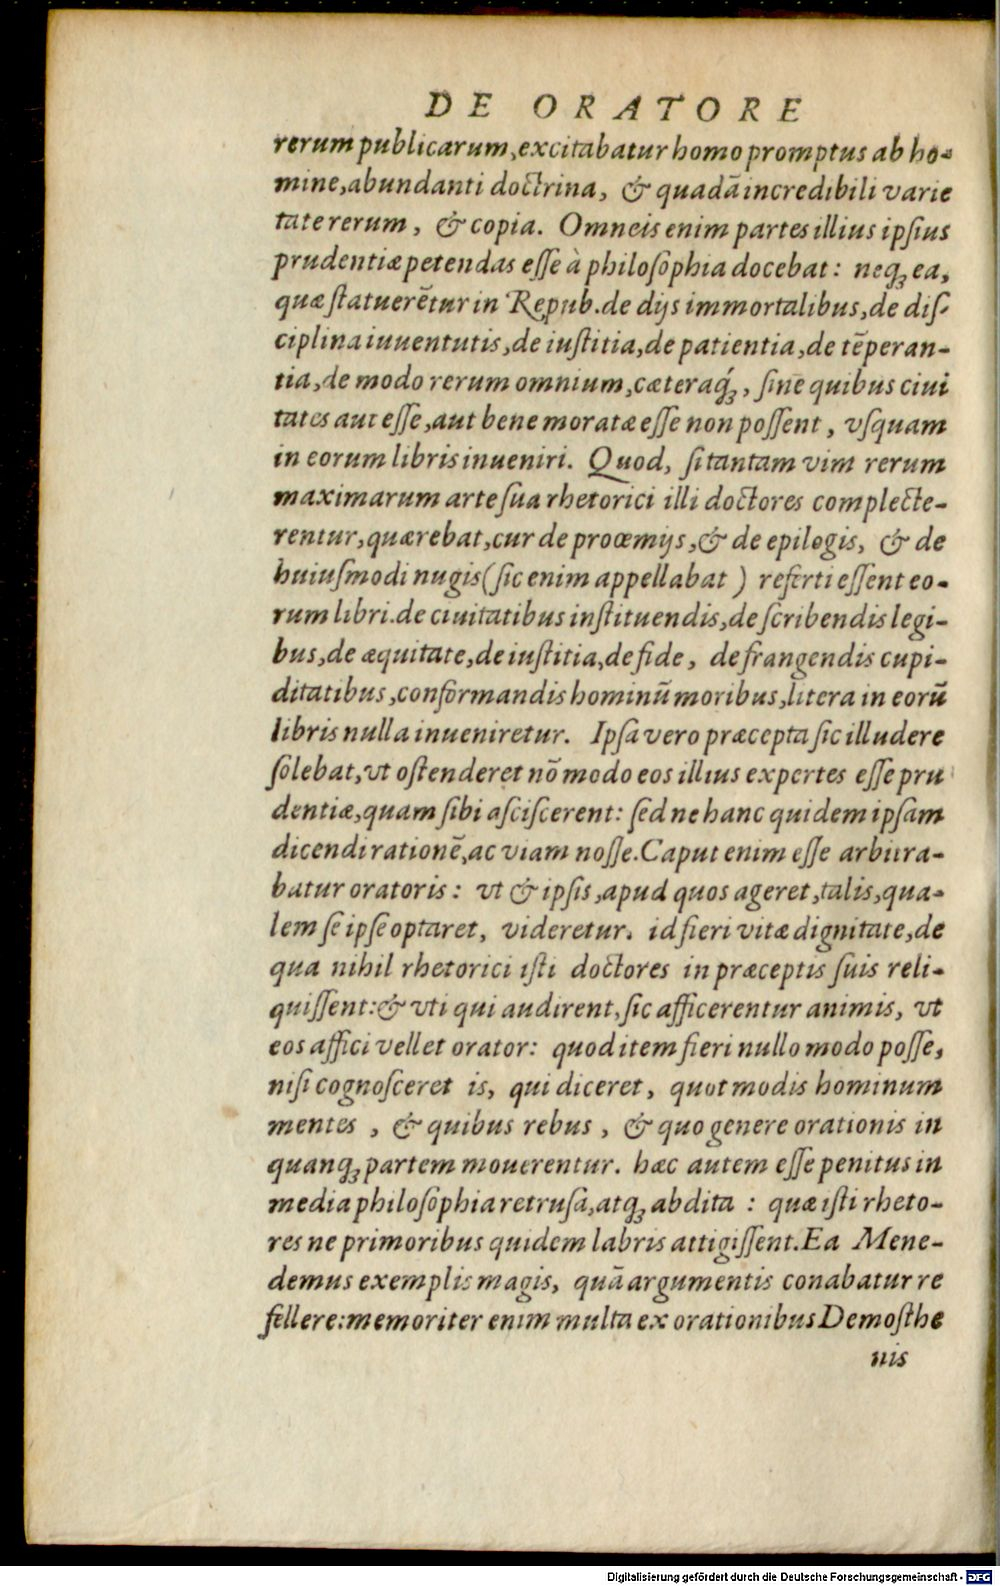 DE ORATORE
rerum publicarum, excitabatur homo promptus ab ho-
mine, abundanti doctrina, & quadā incredibili varie
tate rerum, & copia. Omneis enim partes illius ipſius
prudentiæ petendas eſſe à philoſophia docebat: neq; ea,
quæ ſtatuerētur in Repub. de dijs immortalibus, de diſ-
ciplina iuuentutis, de iuſtitia, de patientia, de tēperan-
tia, de modo rerum omnium, cæteraq́;, ſine quibus ciui
tates aut eſſe, aut bene moratæ eſſe non poſſent, vſquam
in eorum libris inueniri. Quod, ſi tantam vim rerum
maximarum arte ſua rhetorici illi doctores complecte-
rentur, quærebat, cur de procemijs, & de epilogis, & de
huiuſmodi nugis (ſic enim appellabat) referti eſſent eo-
rum libri. de ciuitatibus inſtituendis, de ſcribendis legi-
bus, de æquitate, de iuſtitia, de fide, de frangendis cupi-
ditatibus, conformandis hominū moribus, litera in eorū
libris nulla inueniretur. Ipſa vero præcepta ſic illudere
ſolebat, vt oſtenderet nō modo eos illius expertes eſſe pru
dentiæ, quam ſibi aſciſcerent: ſed ne hanc quidem ipſam
dicendi rationē, ac viam noſſe. Caput enim eſſe arbitra-
batur oratoris: vt & ipſis, apud quos ageret, talis, qua-
lem ſe ipſe optaret, videretur. id fieri vitæ dignitate, de
qua nihil rhetorici iſti doctores in præceptis ſuis reli-
quiſſent: & vti qui audirent, ſic afficerentur animis, vt
eos affici vellet orator: quod item fieri nullo modo poſſe,
niſi cognoſceret is, qui diceret, quot modis hominum
mentes, & quibus rebus, & quo genere orationis in
quanq; partem mouerentur. hæc autem eſſe penitus in
media philoſophia retruſa, atq; abdita: quæ iſti rheto-
res ne primoribus quidem labris attigiſſent. Ea Mene-
demus exemplis magis, quā argumentis conabatur re
fellere: memoriter enim multa ex orationibus Demoſthe
nis
Digitalisierung gefördert durch die Deutsche Forschungsgemeinschaft - DFG